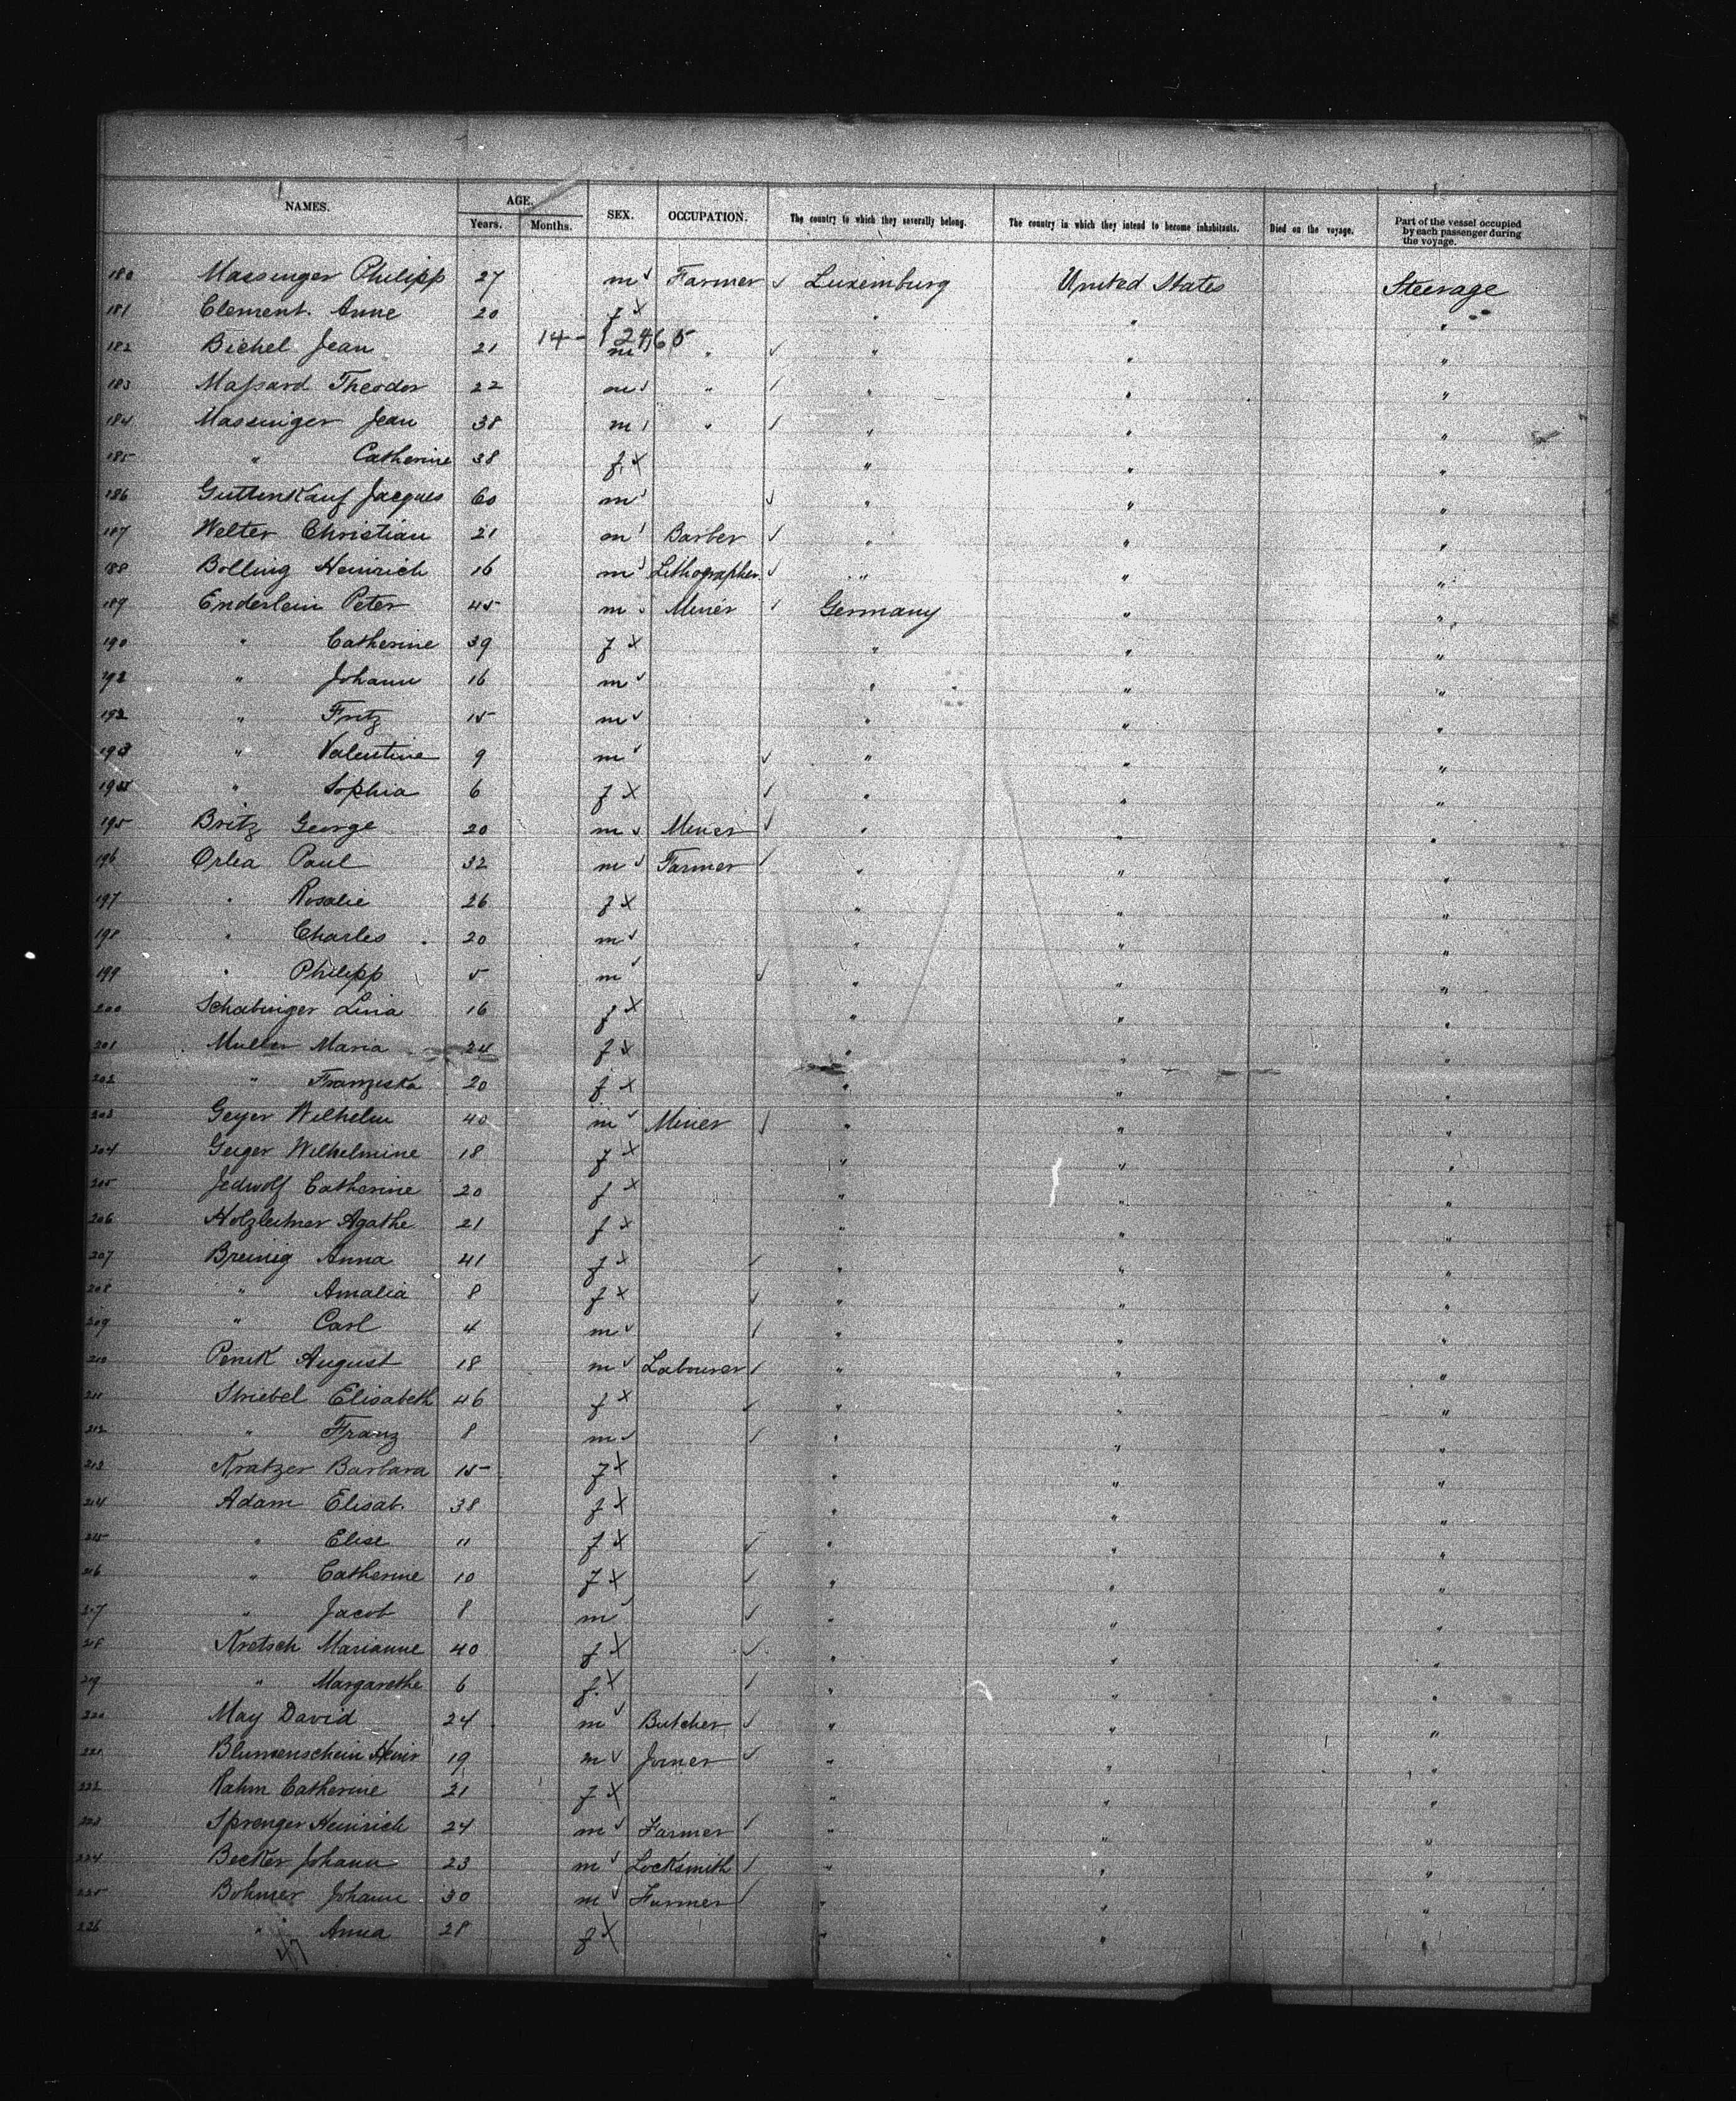 NAMES. AGE. SEX. OCCUPATION. The country to which they severally belong. The country in which they intend to become inhabitants. Died on the voyage. Part of the vessel occupied by each passenger during the voyage.
Years. Months.
180 Massinger Philipp 27 m Farmer Luxemburg United States Steerage
181 Clement. Anne 20 f " " "
14- 12465
182 Bichel Jean 21 m " " " "
183 Maßard Theodor 22 m " " " "
184 Massinger Jean 38 m " " " "
185 " Catherine 38 f " " "
186 Guttenkauf Jacques 60 m " " "
187 Welter Christian 21 m Barber " " "
188 Bolling Heinrich 16 m Lithographer " " "
189 Enderlein Peter 45 m Miner Germany " "
190 " Catherine 39 f " " "
192 " Johann 16 m " " "
192 " Fritz 15 m " " "
193 " Valentine 9 m " " "
" Sophia 6 f " " "
195 Britz George 20 m Miner " " "
196 Orlea Paul 32 m Farmer " " "
197 " Rosalie 26 f " " "
198 " Charles 20 m " " "
199 " Philipp 5 m " " "
200 Schabinger Lina 16 f " " "
201 Muller Maria 24 f " " "
202 " Franziska 20 f " " "
203 Geyer Wilhelm 40 m Miner " " "
204 Geiger Wilhelmine 18 f " " "
205 Jedwolf Catherine 20 f " " "
206 Holzleitner Agathe 21 f " " "
207 Breinig Anna 41 f " " "
208 " Amalia 8 f " " "
209 " Carl 4 m " " "
210 Penik August 18 m Labourer " " "
211 Striebel Elisabeth 46 f " " "
212 " Franz 8 m " " "
213 Kratzer Barbara 15 f " " "
214 Adam Elisab. 38 f " " "
215 " Elise 11 f " " "
216 " Catherine 10 f " " "
217 " Jacob 8 m " " "
218 Kretsch Marianne 40 f " " "
219 " Margarethe 6 f. " " "
220 May David 24 m Butcher " " "
221 Blumenschein Heinr 19 m Joiner " " "
222 Rahm Catherine 21 f " " "
223 Sprenger Heinrich 24 m Farmer " " "
224 Becker Johann 23 m Locksmith " " "
225 Bohmer Johann 30 m Farmer " " "
226 " Anna 28 f " " "
47